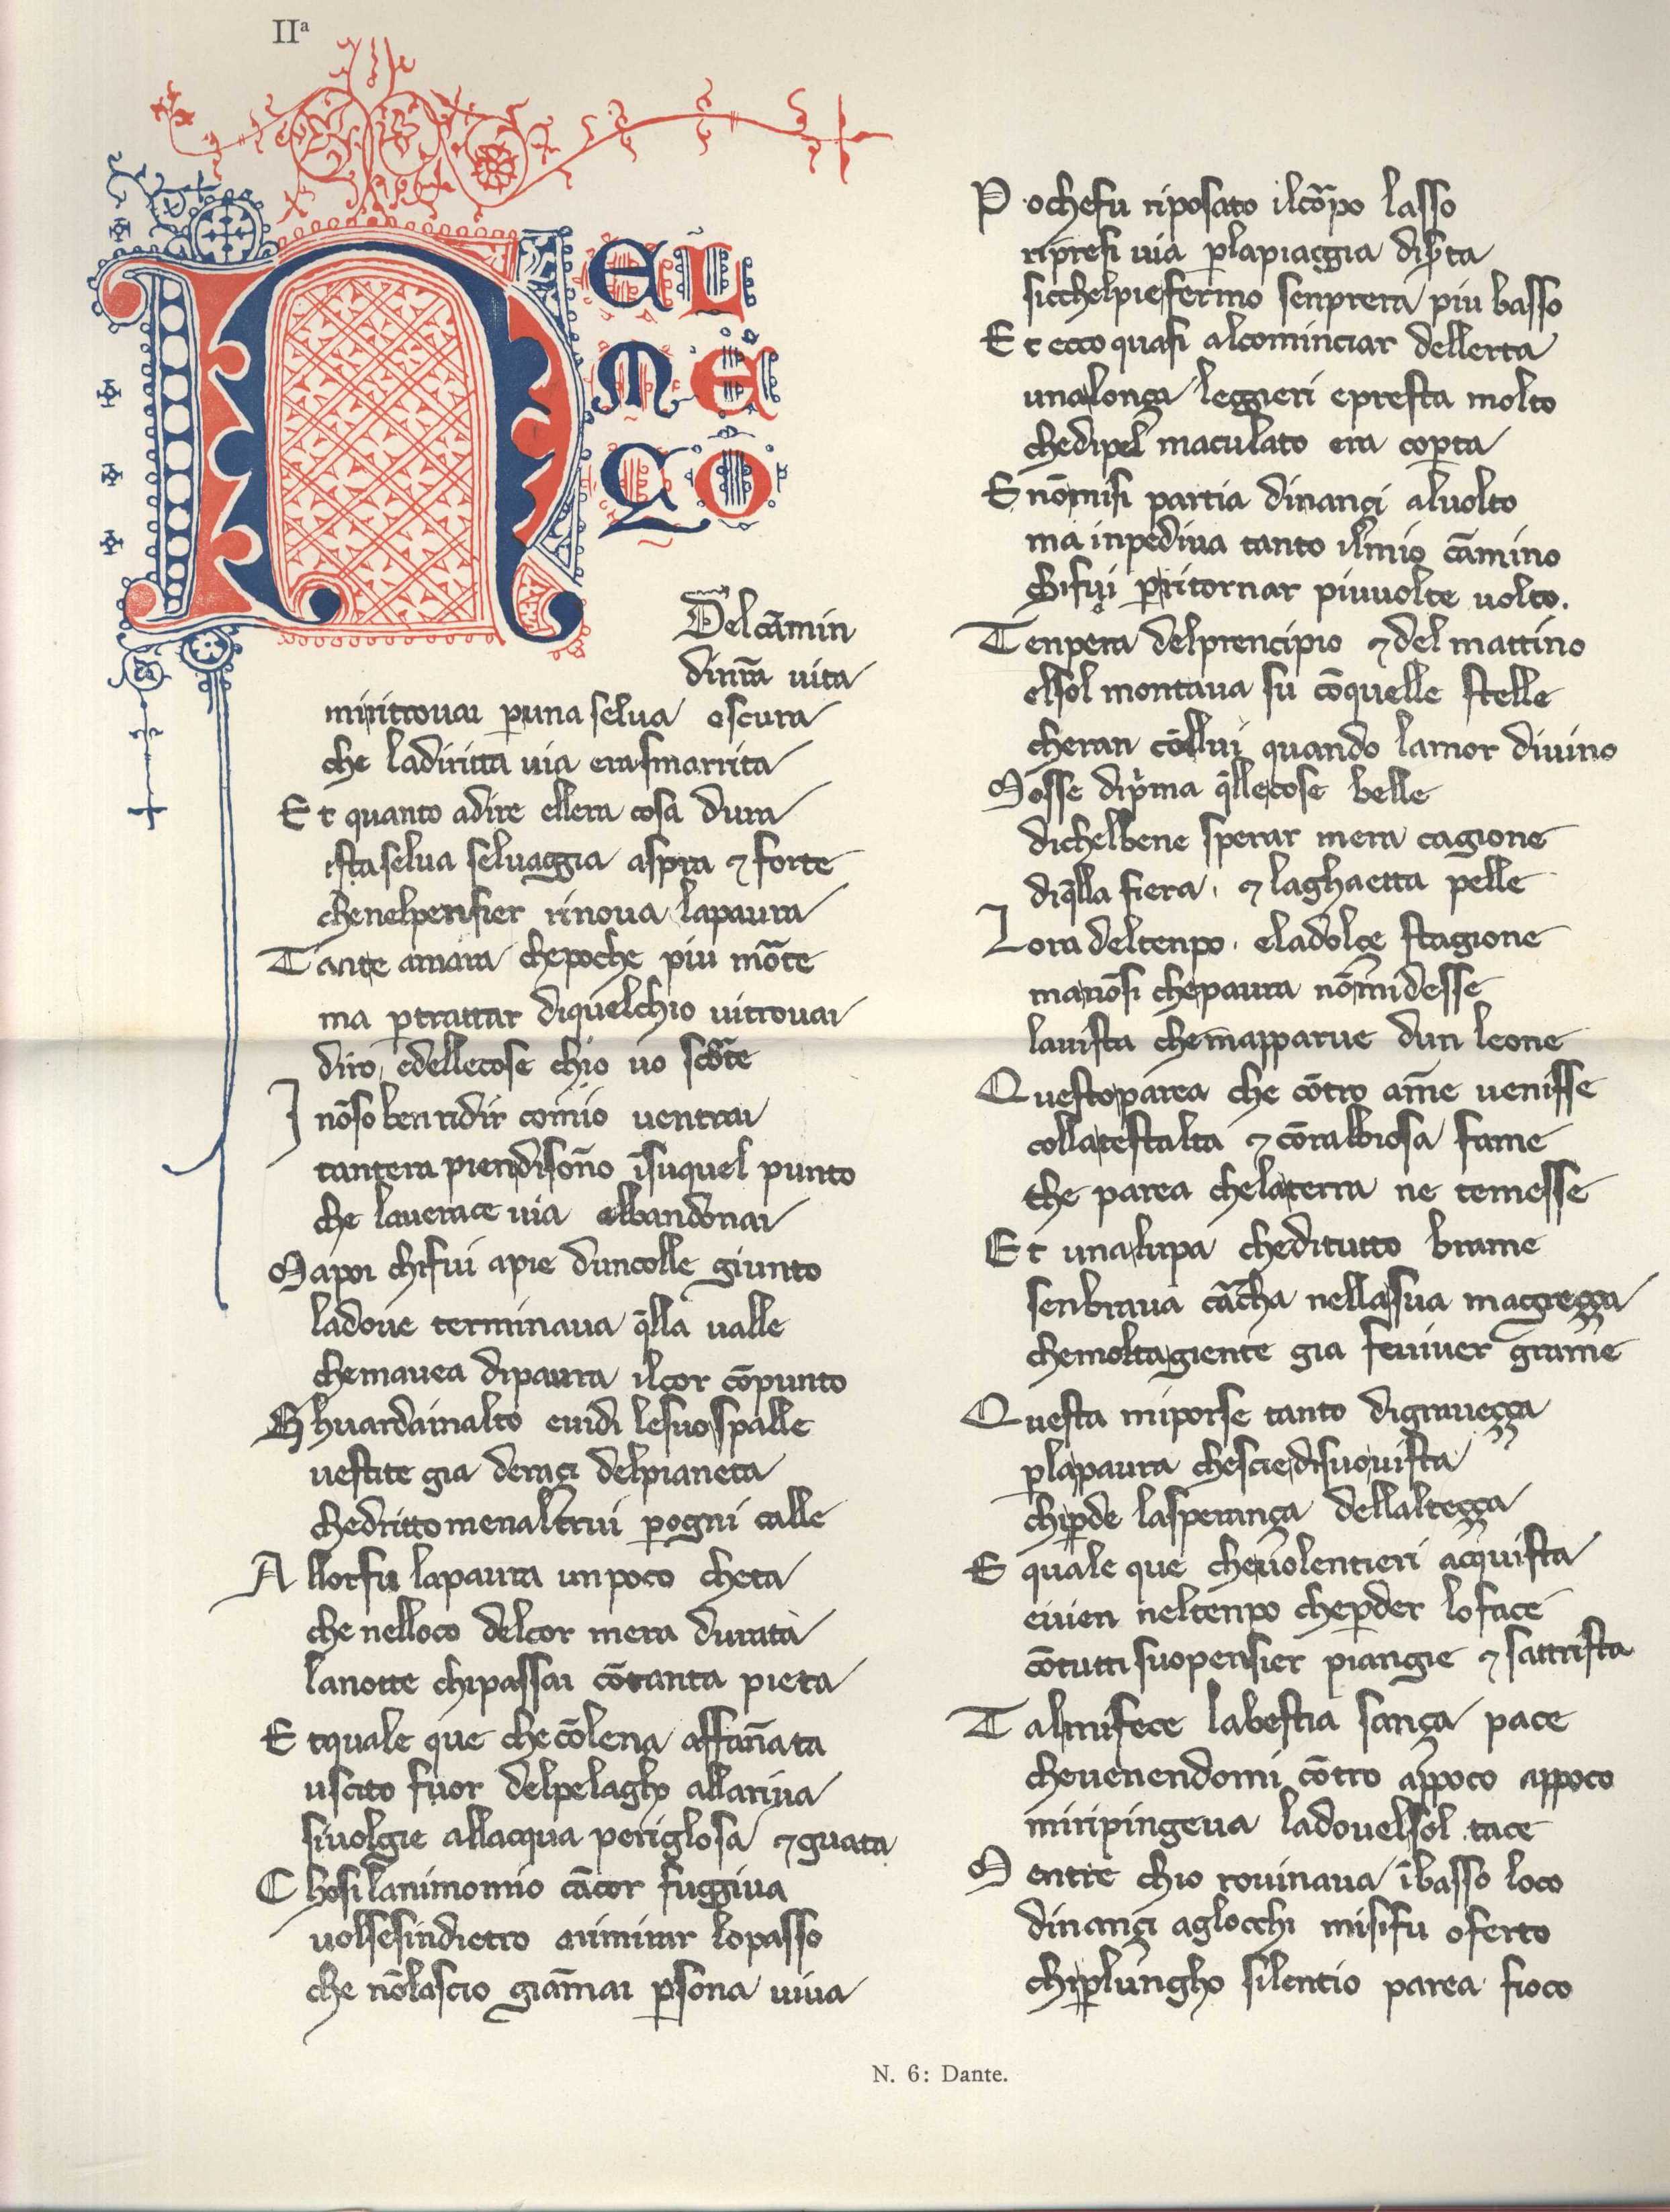 IIª
NEL
ME
ÇO
Delcāmin
dinr̄a uita
miritrouai ꝑuna selua oscura
che ladiritta uia erasmarrita
Et quanto adire ellera cosa dura
ista selua seluaggia aspra ⁊ forte
chenelpensier rinoua lapaura
Tante amara chepoche piu mōrte
ma ꝑtrattar diquelchio uitrouai
diro, edellecose chio uo scōrte
I nōso ben ridir comio uentrai
tantera piendisōno īsuquel punto
che lauerace uia abbandonai
Mapoi chifui apie duncolle giunto
ladoue terminaua q̄lla ualle
chemauea dipaura ilcor cōpunto
Ghuardainalto euidi lesuospalle
uestite gia deraçi delpianeta
chedrittomenaltrui ꝑogni calle
Allorfu lapaura unpoco cheta
che nelloco delcor mera durata
lanotte chipassai cōtanta pieta
Etquale que che cōlena affan̄ata
uscito fuor delpelagho allariua
siuolgie allacqua periglosa ⁊ guata
Chosi lanimomio cācor fuggiua
uolsesindietro arimirar lopasso
che nōlascio giam̄ai ꝑsona uiua
Pochefu riposato ilcōrpo lasso
ripresi uia ꝑlapiaggia disꝑta
sicchelpiefermo senprera piu basso
Et ecco quasi alcominciar dellerta
unalonça leggieri epresta molto
chedipel maculato era coꝑta
E nōmisi partia dinançi aluolto
ma inpediua tanto ilmio cāmino
chifui ꝑritornar piuuolte uolto.
Tenpera delprencipio ⁊ del mattino
elsol montaua su cōquelle stelle
cheran cōllui quando lamor diuino
Mosse dip̍ma q̄llecose belle
dichelbene sperar mera cagione
diq̄lla fiera. ⁊ laghaetta pelle
Lora deltenpo. eladolçe stagione
manōsi chepaura nōmidesse
lauista chem̄apparue dun leone
Questoparea che cōtro am̄e uenisse
collatestalta ⁊ cōrabbiosa fame
che parea chelaterra ne temesse
Et unalupa cheditutto brame
senbraua cārcha nellasua magreçça
chemoltagiente gia feuiuer grame
Questa miporse tanto digraueçça
ꝑlapaura chesciedisuouista
chiꝑde lasperança dellalteçça
E quale que cheuolentieri acquista
eiuien neltenpo cheꝑder loface
cōtutti suopensier piangie ⁊ sattrista
Talmifece labestia sança pace
cheuenendomi cōtro appoco appoco
miripingeua ladouelsol tace
Mentre chio rouinaua ībasso loco
dinançi aglocchi misifu oferto
chiꝑlungho silentio parea fioco
N. 6: Dante.